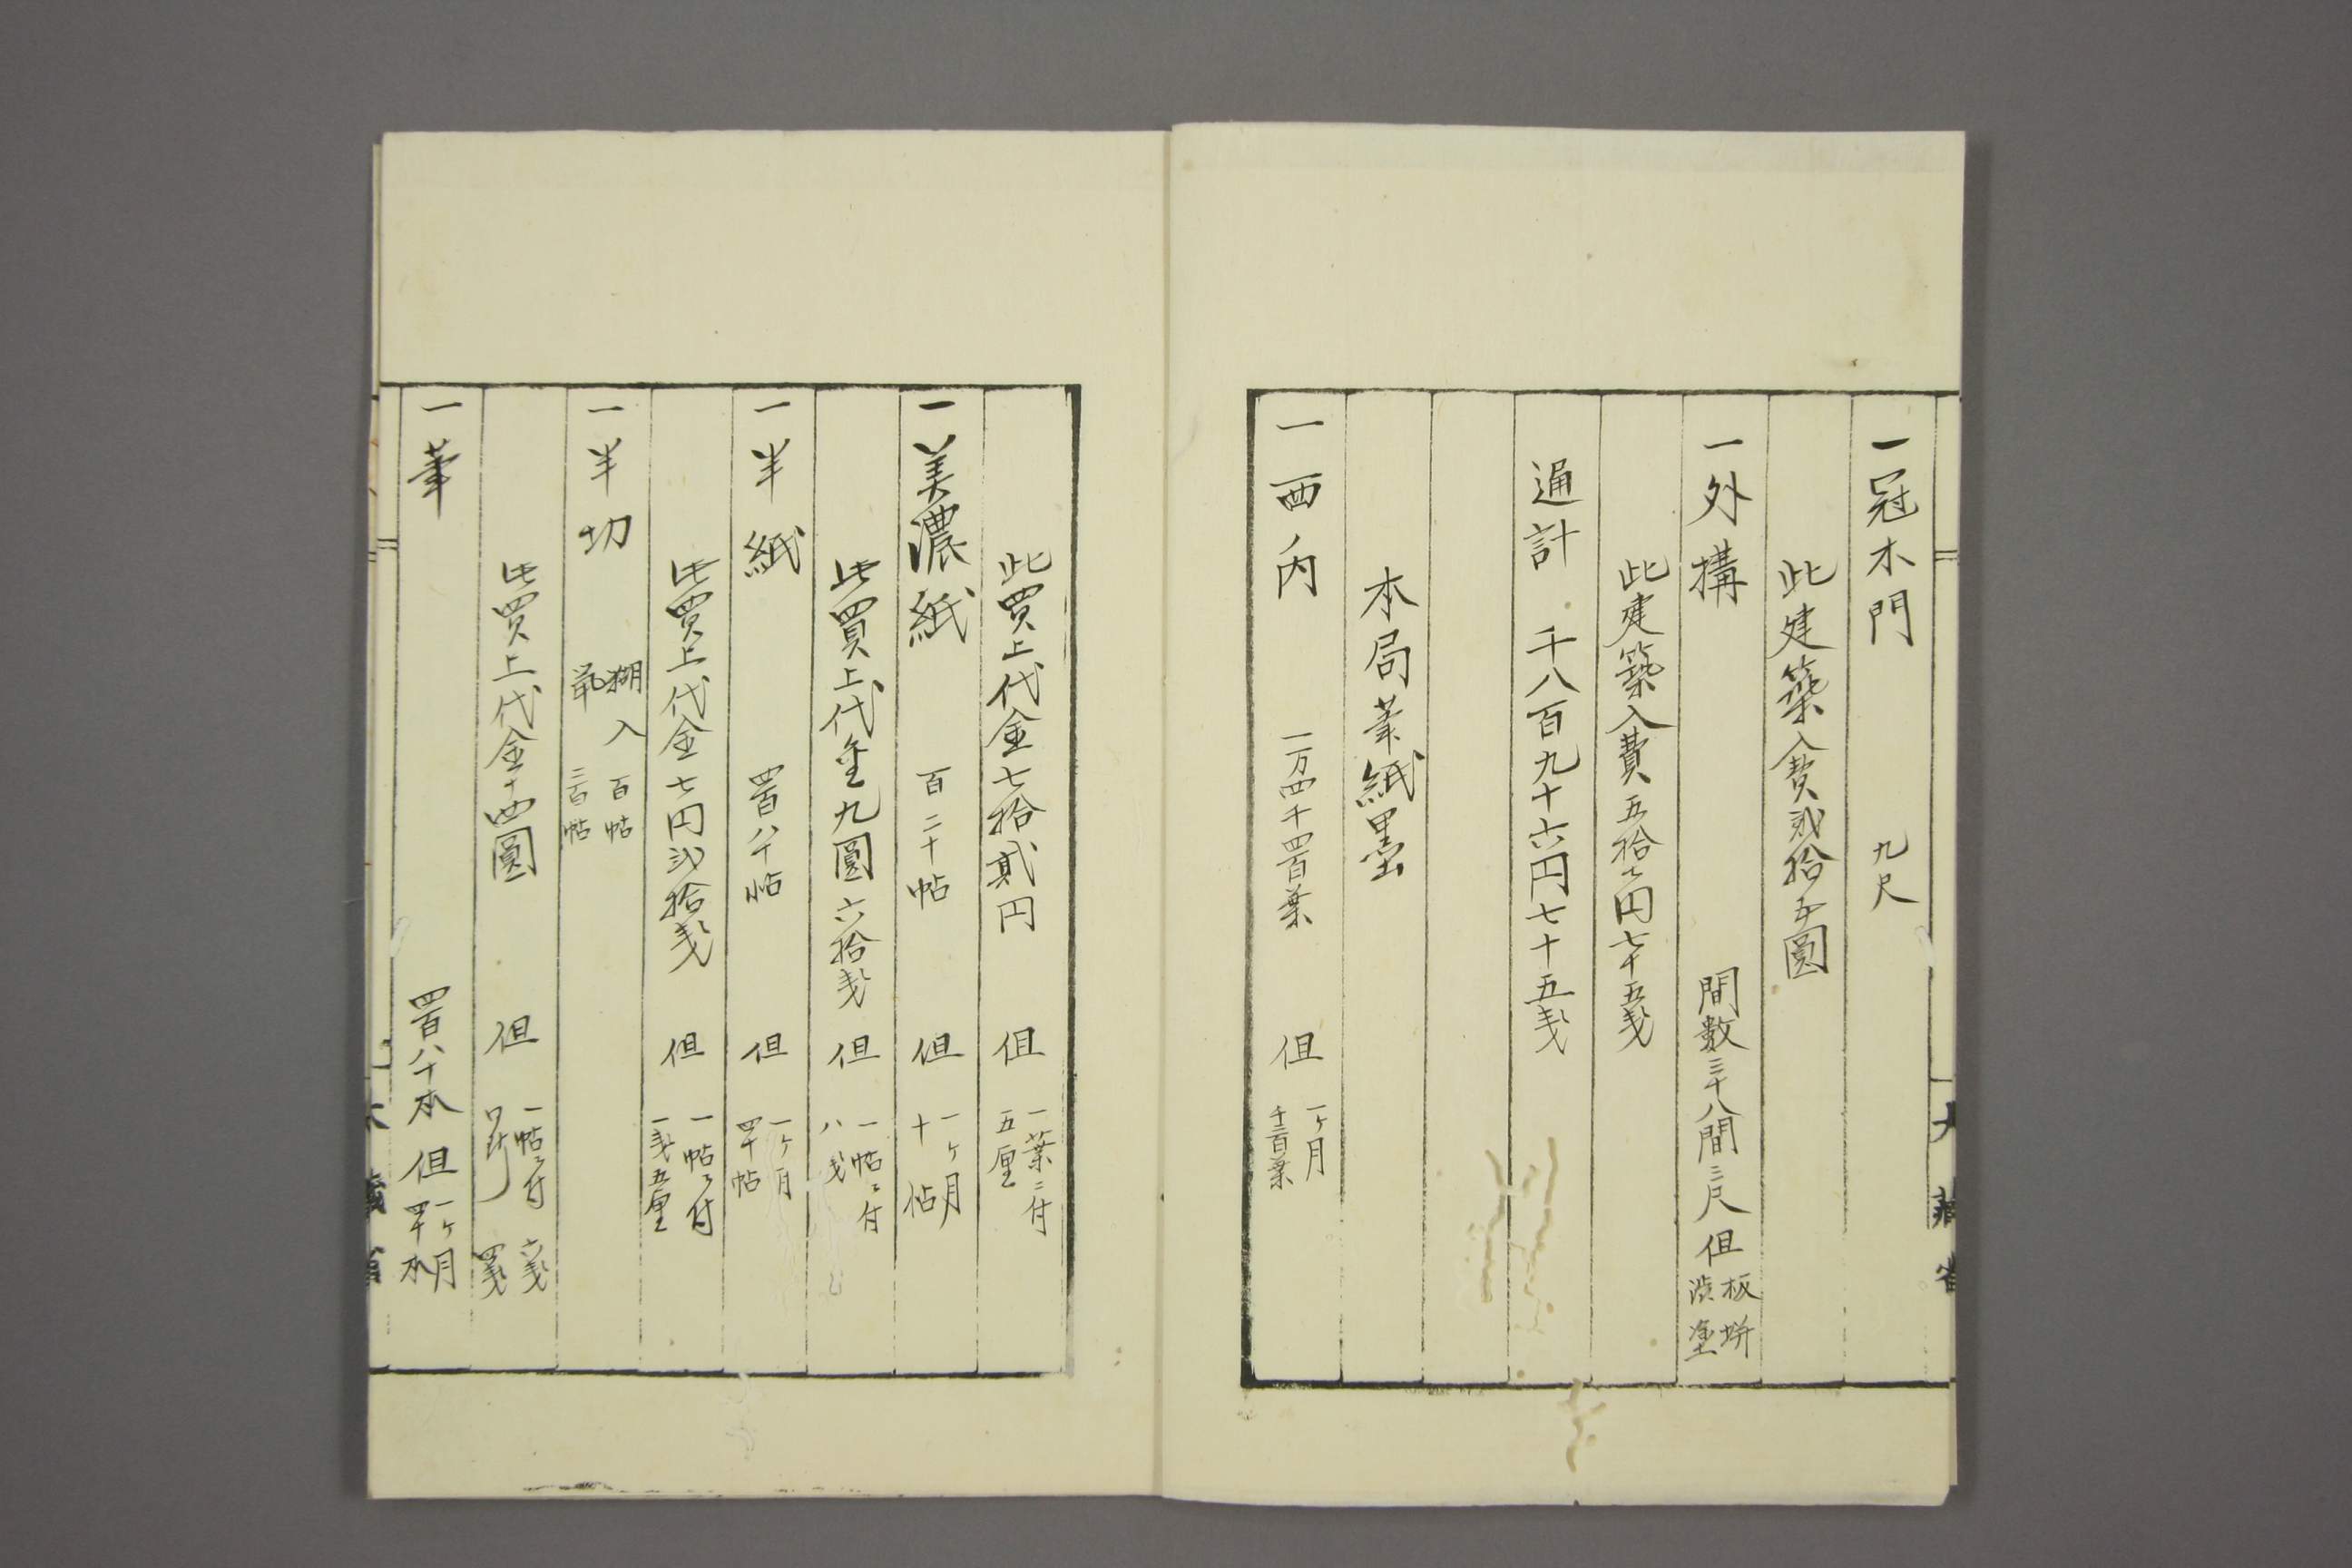 一冠木門 九尺
此建築入費弐拾五圓
一外搆 間數三十八間三尺 但 板塀
渋塗
此建築入費五拾七円七十五戔
通計 千八百九十六円七十五戔
本局筆紙墨
一西ノ内 一万四千四百葉 但 一ヶ月
千二百葉
此買上代金七拾貳円 但 一葉ニ付
五厘
一美濃紙 百二十帖 但 一ヶ月
十帖
此買上代金九圓六拾戔 但 一帖ニ付
八戔
一半紙 四百八十帖 但 一ヶ月
四十帖
此買上代金七円弐拾戔 但 一帖ニ付
一戔五厘
一半切 糊入 百帖
二百帖
此買上代金十四圓 但 一帖ニ付 六戔
四戔
一筆 四百八十本 但 一ヶ月
四十本
大藏省